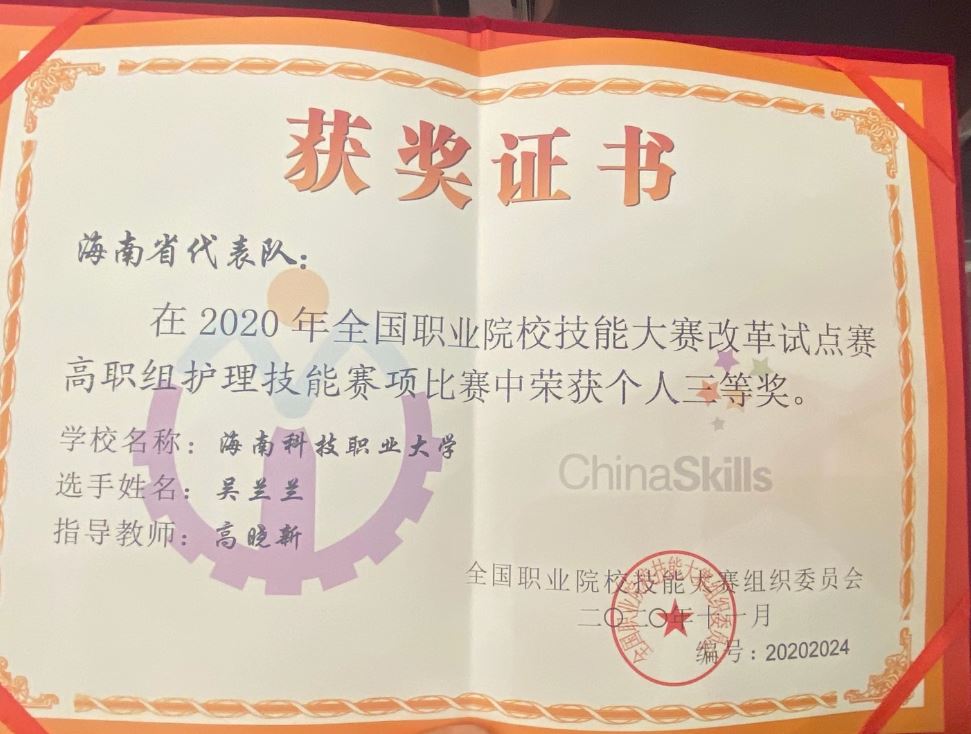 获奖证书
海南省代表队：
在 2020 年全国职业院校技能大赛改革试点赛
高职组护理技能赛项比赛中荣获个人三等奖。
学校名称：海南科技职业大学
选手姓名：吴兰兰
指导教师：高晓新
ChinaSkills
全国职业院校技能大赛组织委员会
二〇二〇年十一月
编号：20202024
全国职业院校技能大赛组织委员会